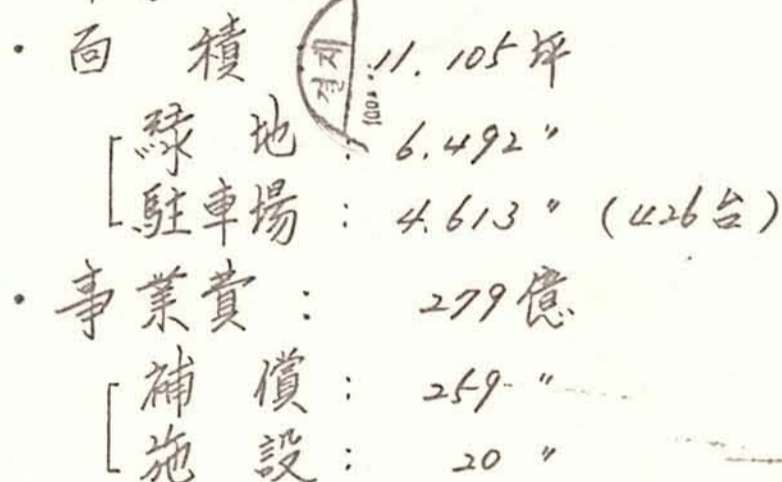 · 面 積 : 11.105坪
결재
[ 綠 地 : 6.492〃
駐車場 : 4.613〃 (426台)
· 事業費 : 279億
[ 補 償 : 259〃
施 設 : 20〃